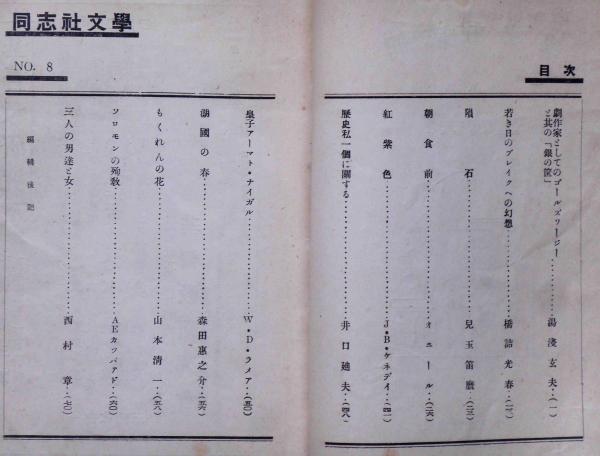 同志社文學
NO. 8
目次
劇作家としてのゴールズワージーと其の「銀の筐」‥‥‥‥湯淺玄夫‥(一)
若き日のブレイクへの幻想‥‥‥‥橋詰光春‥(二一)
隕石‥‥‥‥兒玉笛麿‥(二三)
朝食前‥‥‥‥オニール‥(二六)
紅紫色‥‥‥‥J・B・ケネデイ‥(四一)
歷史私一個に關する‥‥‥‥井口迪夫‥(四八)
皇子アーマト・ナイガル‥‥‥‥W・D・ラメア‥(五〇)
湖國の春‥‥‥‥森田惠之介‥(五六)
もくれんの花‥‥‥‥山本淸一‥(五八)
ソロモンの殉敎‥‥‥‥AEカツパアド‥(六〇)
三人の男達と女‥‥‥‥西村章‥(七〇)
編輯後記